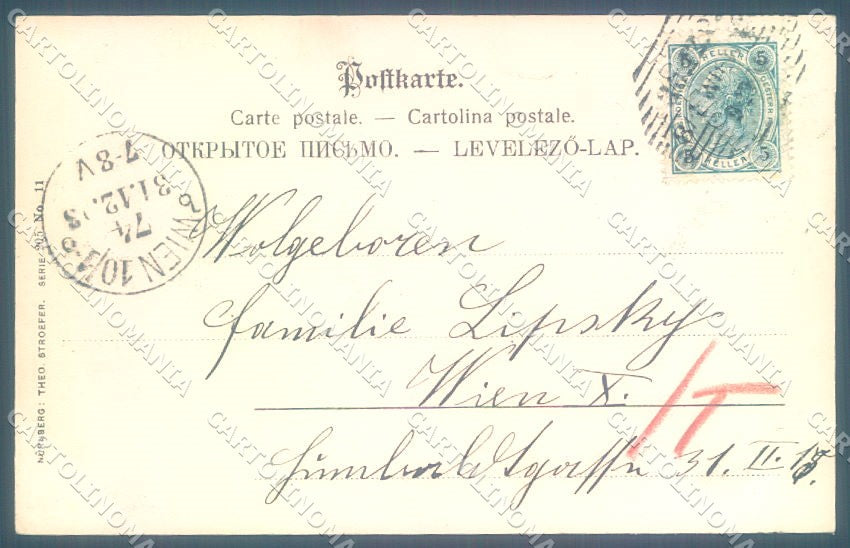 Postkarte.
Carte postale. — Cartolina postale.
ОТКРЫТОЕ ПИСЬМО. — LEVELEZŐ-LAP.
5 HELLER 5
5 HELLER 5
WIEN 10/1
74
31.12.
7-8V
NÜRNBERG: THEO. STROEFER. SERIE No. 11
Wolgeboren
familie Lipsky
Wien X.
Humboldtgasse 31. II. 15.
CARTOLINOMANIA